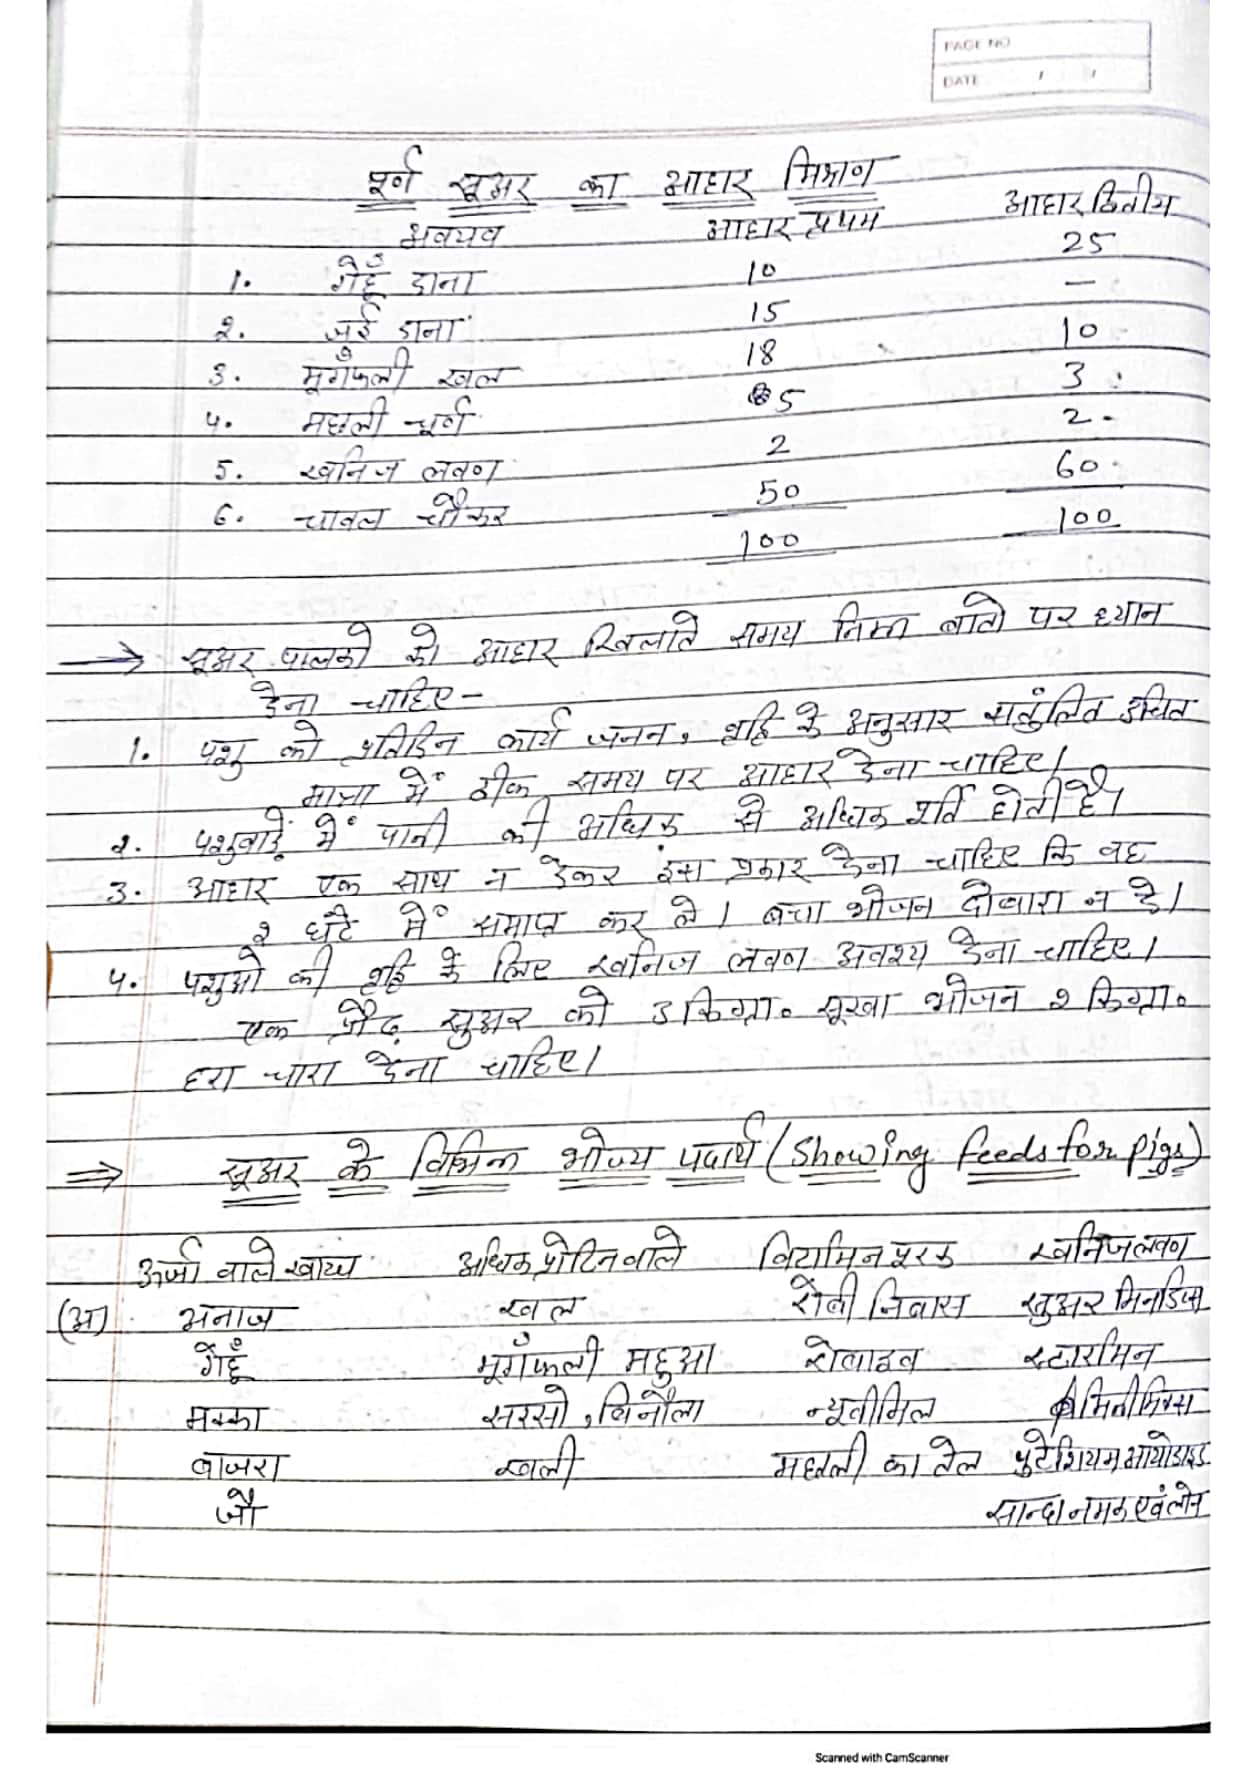 PAGE NO
DATE / /
पूर्ण सूअर का आहार मिश्रण
अवयव आहार प्रथम आहार द्वितीय
1. गेहूँ दाना 10 25
२. जई दाना 15 —
3. मूगँफली खल 18 10
4. मछली चूर्ण 5 3
5. खनिज लवण 2 2
6. चावल चौकर 50 60
100 100
→ सूअर पालको को आहार खिलाते समय निम्न बातो पर ध्यान
देना चाहिए-
1. पशु को प्रतिदिन कार्य जनन, वृद्धि के अनुसार संतुलित उचित
मात्रा में ठीक समय पर आहार देना चाहिए।
२. पशुवाड़े में पानी की अधिक से अधिक शर्ति होती है।
3. आहार एक साथ न देकर इस प्रकार देना चाहिए कि वह
२ घंटे में समाप्त कर ले। बचा भोजन दोबारा न दे।
4. पशुओ की वृद्धि के लिए खनिज लवण अवश्य देना चाहिए।
एक प्रौढ़ सुअर को 3 किग्रा० सूखा भोजन २ किग्रा०
हरा चारा देना चाहिए।
⇒ सूअर के विभिन्न भोज्य पदार्थ (Showing feeds for pigs)
ऊर्जा वाले खाद्य अधिक प्रोटिन वाले विटामिन पूरक खनिज लवण
(अ) अनाज खल रोवी निवास सुअर मिनडिप्स
गेहूँ मूगँफली महुआ रोवाइव स्टारमिन
मक्का सरसो, बिनौला न्यूवीमिल मिनीमिक्स
बाजरा खली मछली का तेल पुटेशियम आयोडाइड
जौ सान्दा नमक एवं लोन
Scanned with CamScanner